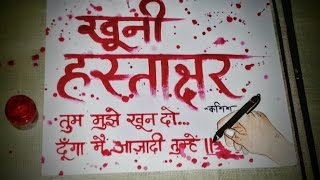 खूनी
हस्ताक्षर
-कशिश
तुम मुझे खून दो...
दूँगा मैं आज़ादी तुम्हें।।